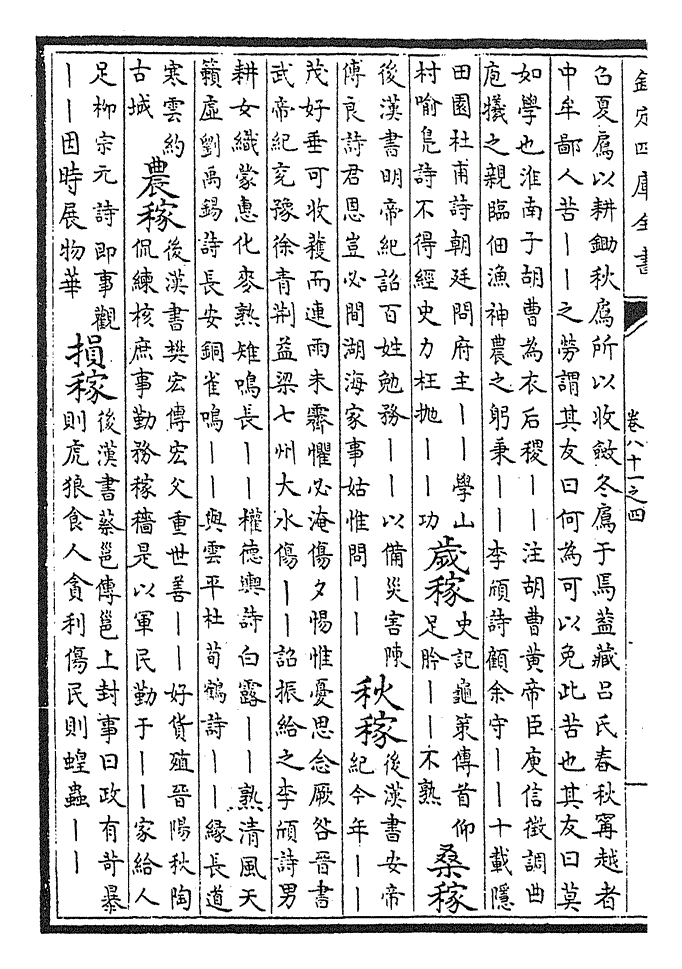 欽定四庫全書
卷八十一之四
芻夏扈以耕鋤秋扈所以收斂冬扈于焉蓋藏吕氏春秋寗越者
中牟鄙人苦——之勞謂其友曰何為可以免此苦也其友曰莫
如學也淮南子胡曹為衣后稷——注胡曹黄帝臣庾信徵調曲
庖犧之親臨佃漁神農之躬秉——李頎詩顧余守——十載隱
田園杜甫詩朝廷問府主——學山
村喻鳧詩不得經史力枉抛——功
歲稼
史記龜策傳首仰
足肣——不熟
桑稼
後漢書明帝紀詔百姓勉務——以備災害陳
傅良詩君恩豈必間湖海家事姑惟問——
秋稼
後漢書安帝
紀今年——
茂好垂可收穫而連雨未霽懼必淹傷夕惕惟憂思念厥咎晉書
武帝紀兖豫徐青荆益梁七州大水傷——詔振給之李頎詩男
耕女織蒙惠化麥熟雉鳴長——權德輿詩白露——熟清風天
籟虛劉禹錫詩長安銅雀鳴——與雲平杜荀鶴詩——緣長道
寒雲約
古城
農稼
後漢書樊宏傳宏父重世善——好貨殖晉陽秋陶
侃練核庶事勤務稼穡是以軍民勤于——家給人
足柳宗元詩即事觀
——因時展物華
損稼
後漢書蔡邕傳邕上封事曰政有苛暴
則虎狼食人貪利傷民則蝗蟲——